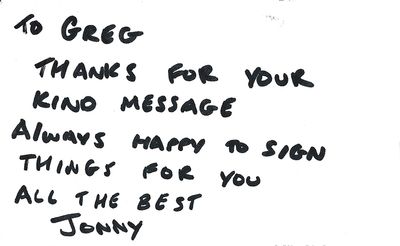 TO GREG
THANKS FOR YOUR
KIND MESSAGE
ALWAYS HAPPY TO SIGN
THINGS FOR YOU
ALL THE BEST
JONNY